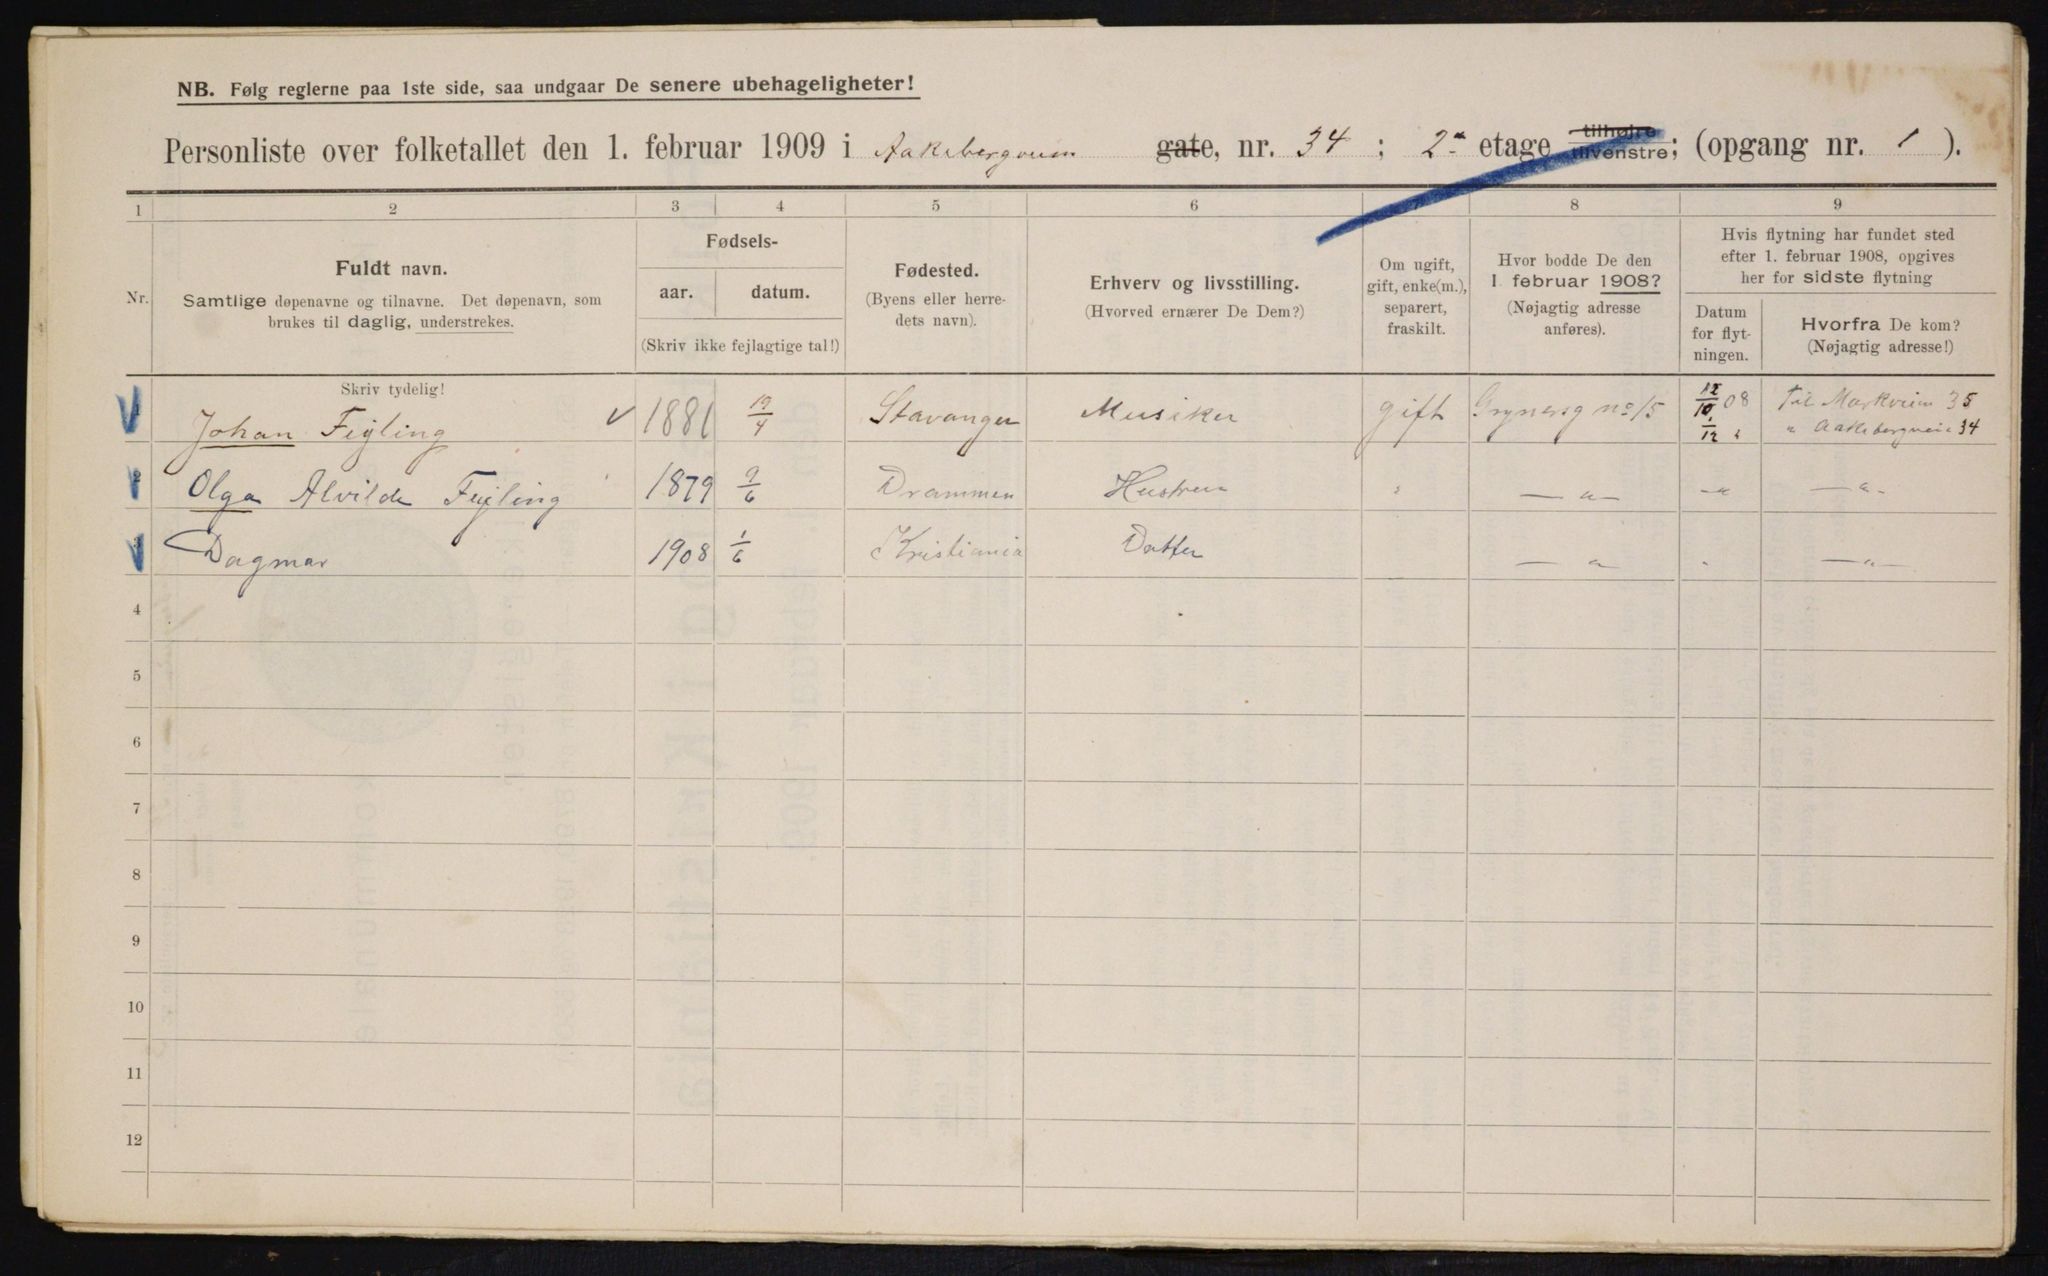 NB. Følg reglerne paa 1ste side, saa undgaar De senere ubehageligheter!
Personliste over folketallet den 1. februar 1909 i Aakebergveien gate, nr. 34 ; 2 etage tilhøjre tilvenstre; (opgang nr. 1 ).
1 2 3 4 5 6 7 8 9
Nr.
Fuldt navn.
Samtlige døpenavne og tilnavne. Det døpenavn, som
brukes til daglig, understrekes.
Fødsels-
aar. datum.
(Skriv ikke fejlagtige tal!)
Fødested.
(Byens eller herre-
dets navn).
Erhverv og livsstilling.
(Hvorved ernærer De Dem?)
Om ugift,
gift, enke(m.),
separert,
fraskilt.
Hvor bodde De den
1 februar 1908?
(Nøjagtig adresse
anføres).
Hvis flytning har fundet sted
efter 1. februar 1908, opgives
her for sidste flytning
Datum
for flyt-
ningen.
Hvorfra De kom?
(Nøjagtig adresse!)
Skriv tydelig!
1 Johan Fejling 1881 19/4 Stavanger Musiker gift Grynersg no 15 12/10 08 Til Markveien 35
1/12 " " Aakebergveien 34
2 Olga Alvilde Fejling 1879 9/6 Drammen Hustru " — " — — " — " —
3 Dagmar 1908 1/6 Kristiania Datter — " — " — " —
4
5
6
7
8
9
10
11
12